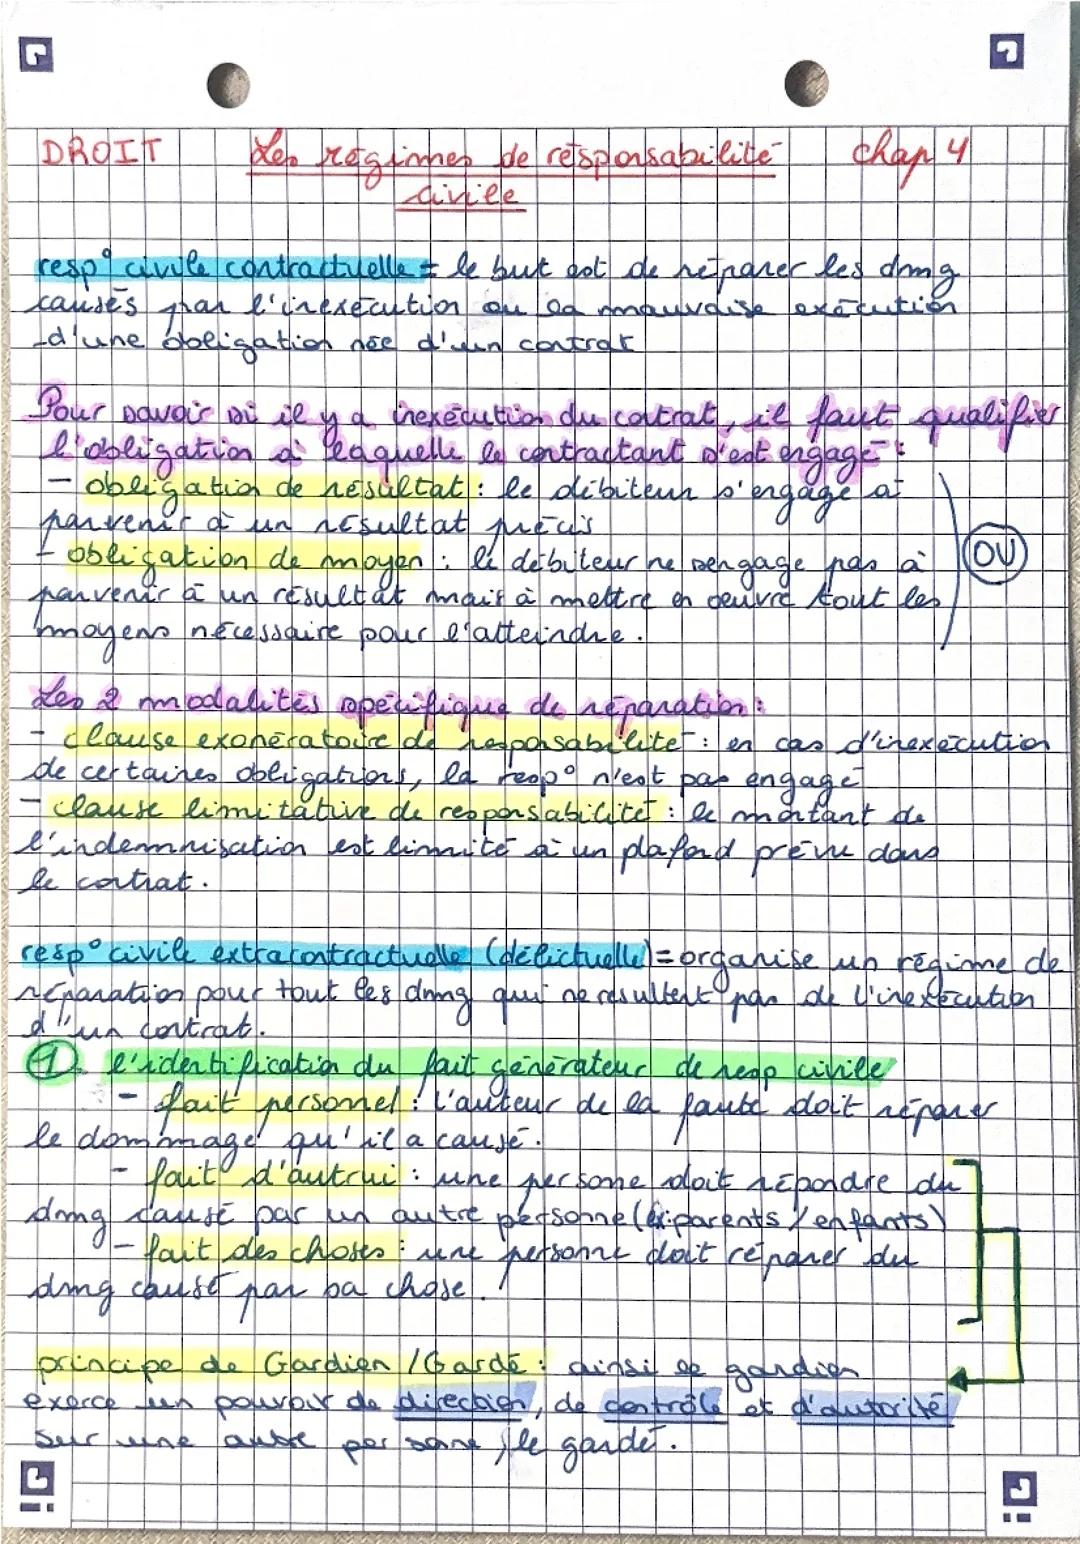 DROIT Les régimes de responsabilité chap 4
civile
resp° civile contractuelle = le but est de réparer les dmg
causés par l'inexécution ou la mauvaise exécution
d'une obligation née d'un contrat
Pour savoir si il y a inexécution du contrat, il faut qualifier
l'obligation à laquelle le contractant s'est engagé :
- obligation de résultat : le débiteur s'engage à
parvenir à un résultat précis
- obligation de moyen : le débiteur ne s'engage pas à
OU
parvenir à un résultat mais à mettre en oeuvre tout les
moyens nécessaire pour l'atteindre.
Les 2 modalités spécifique de réparation :
- clause exonératoire de responsabilité : en cas d'inexécution
de certaines obligations, la resp° n'est pas engagé
- clause limitative de responsabilité : le montant de
l'indemnisation est limité à un plafond prévu dans
le contrat.
resp° civile extracontractuelle (délictuelle) = organise un régime de
réparation pour tout les dmg qui ne resultent pas de l'inexécution
d'un contrat.
1 l'identification du fait générateur de resp civile
- fait personnel : l'auteur de la faute doit réparer
le dommage qu'il a causé.
- fait d'autrui : une personne doit répondre du
dmg causé par un autre personne (ex: parents / enfants)
- fait des choses : une personne doit réparer du
dmg causé par sa chose.
principe de Gardien / Gardé : ainsi le gardien
exerce un pouvoir de direction, de contrôle et d'autorité
sur une autre personne, le gardé.